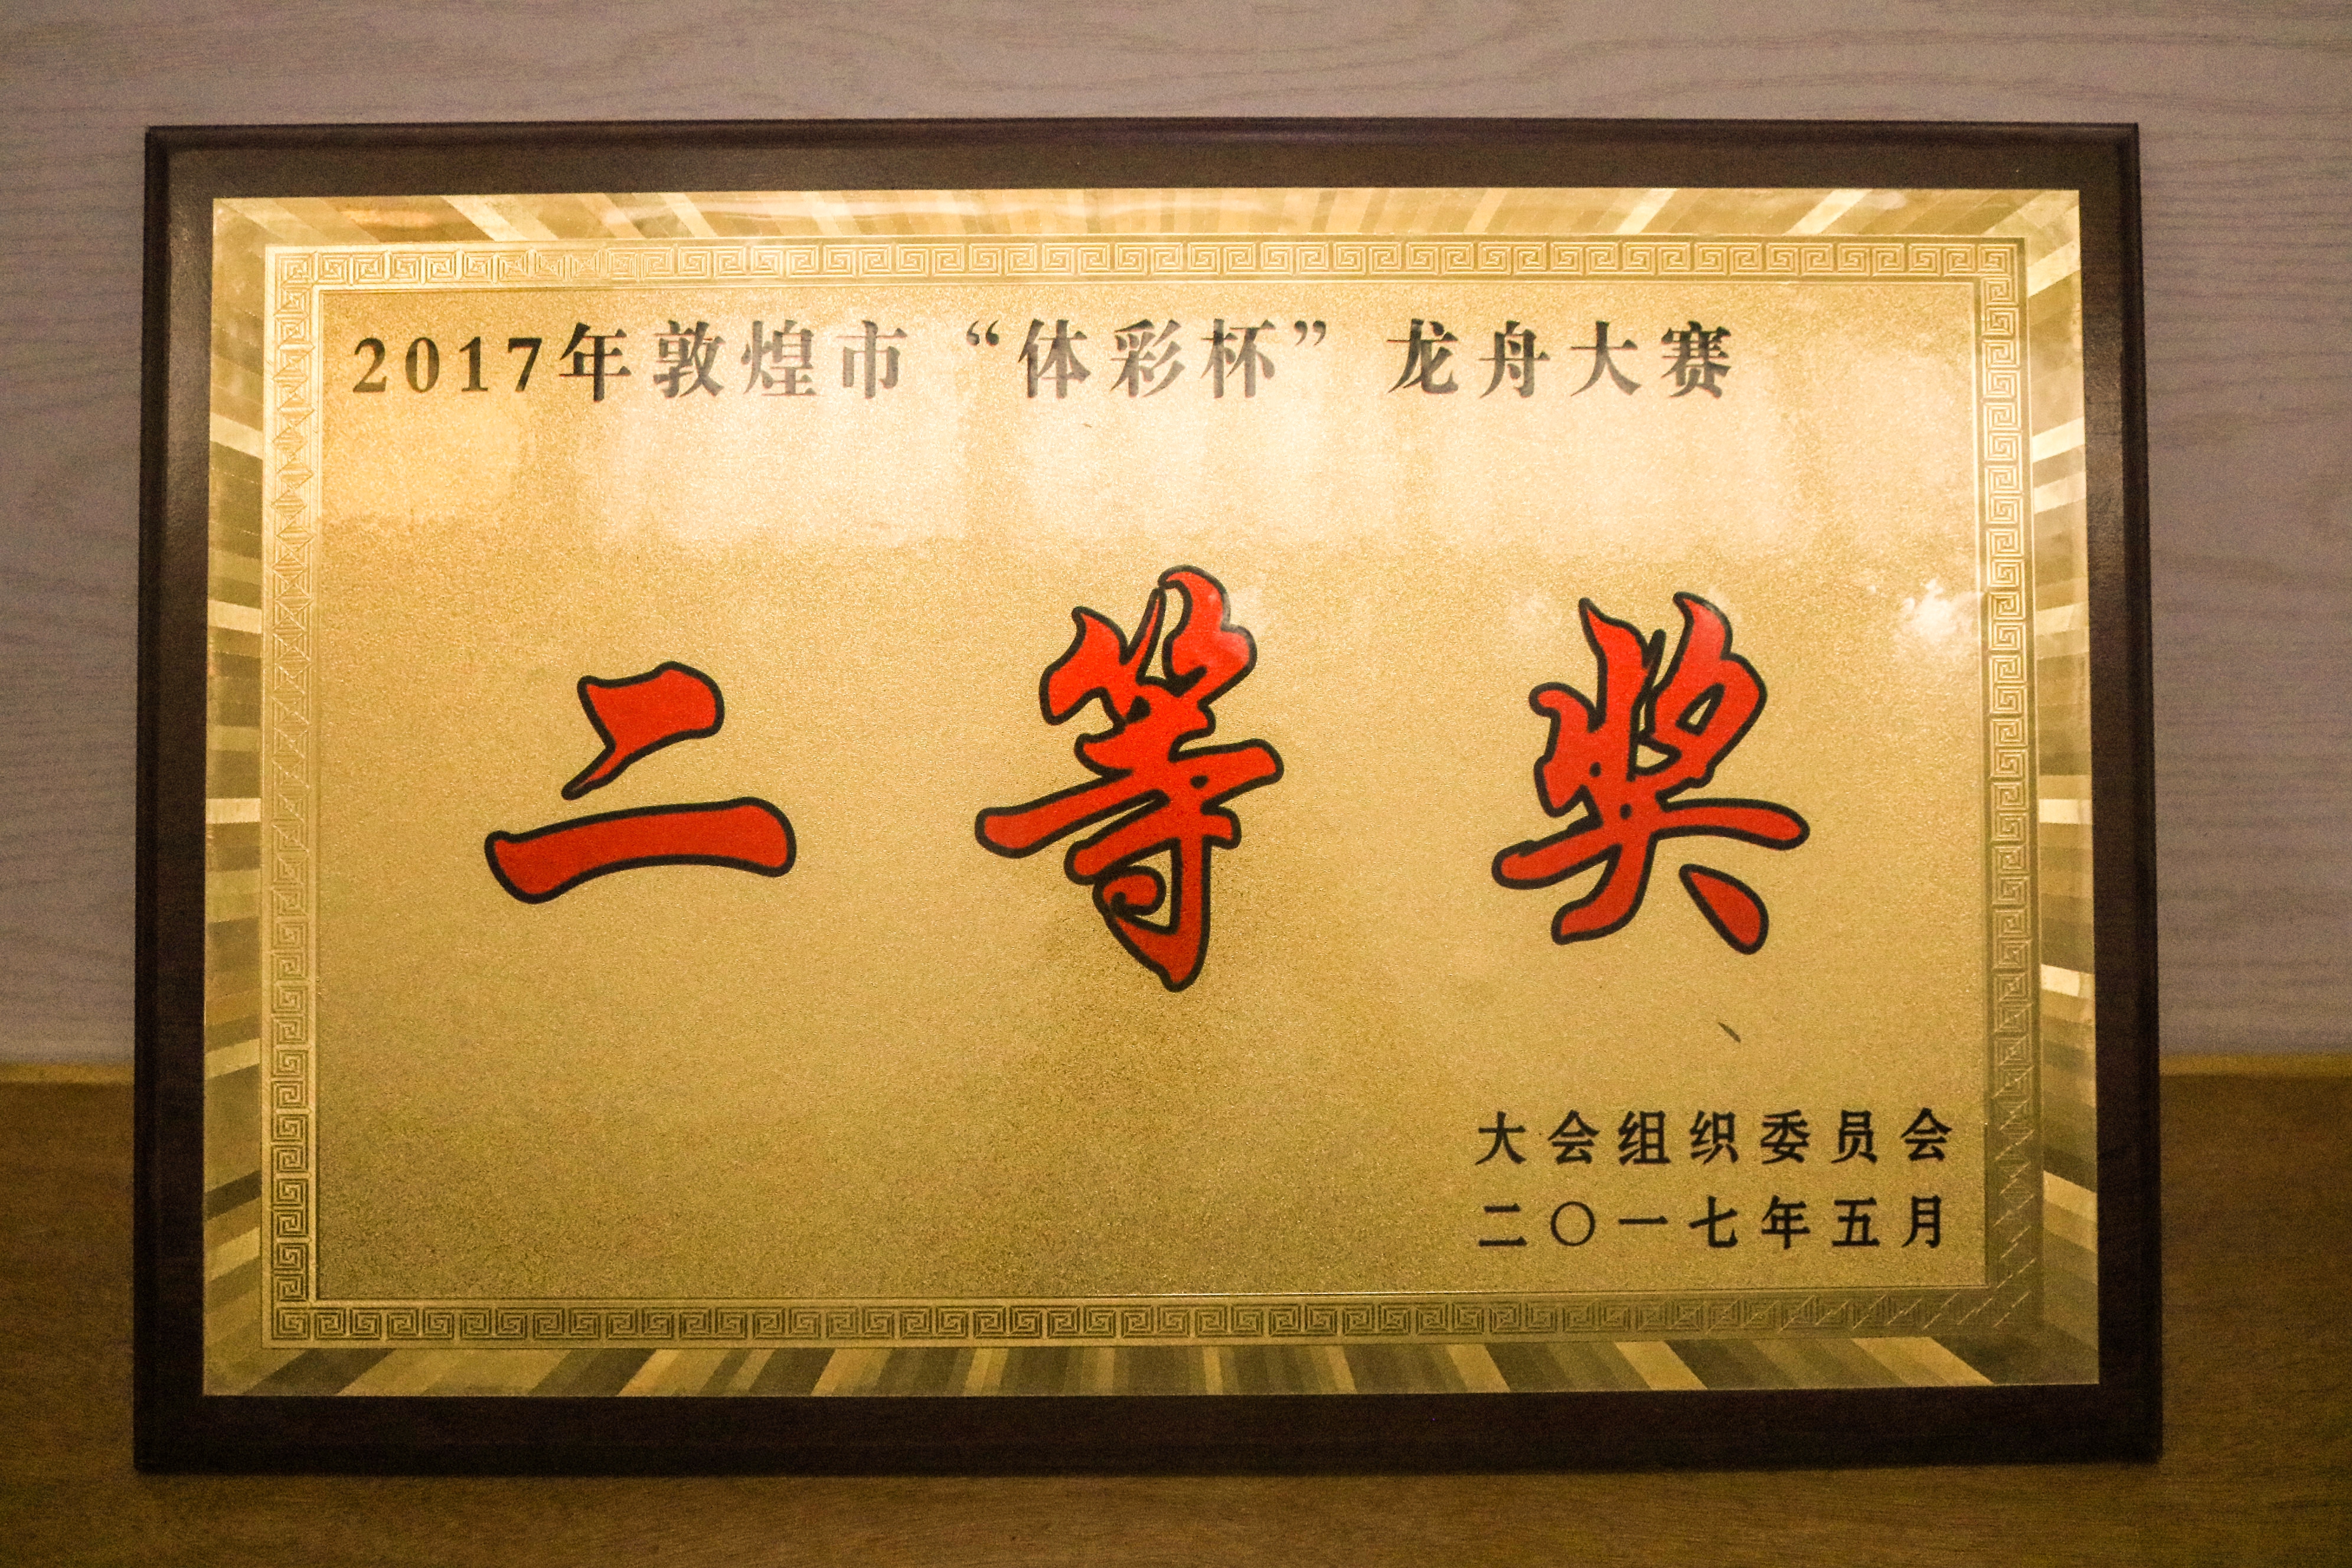 2017年敦煌市“体彩杯”龙舟大赛
二等奖
大会组织委员会
二〇一七年五月